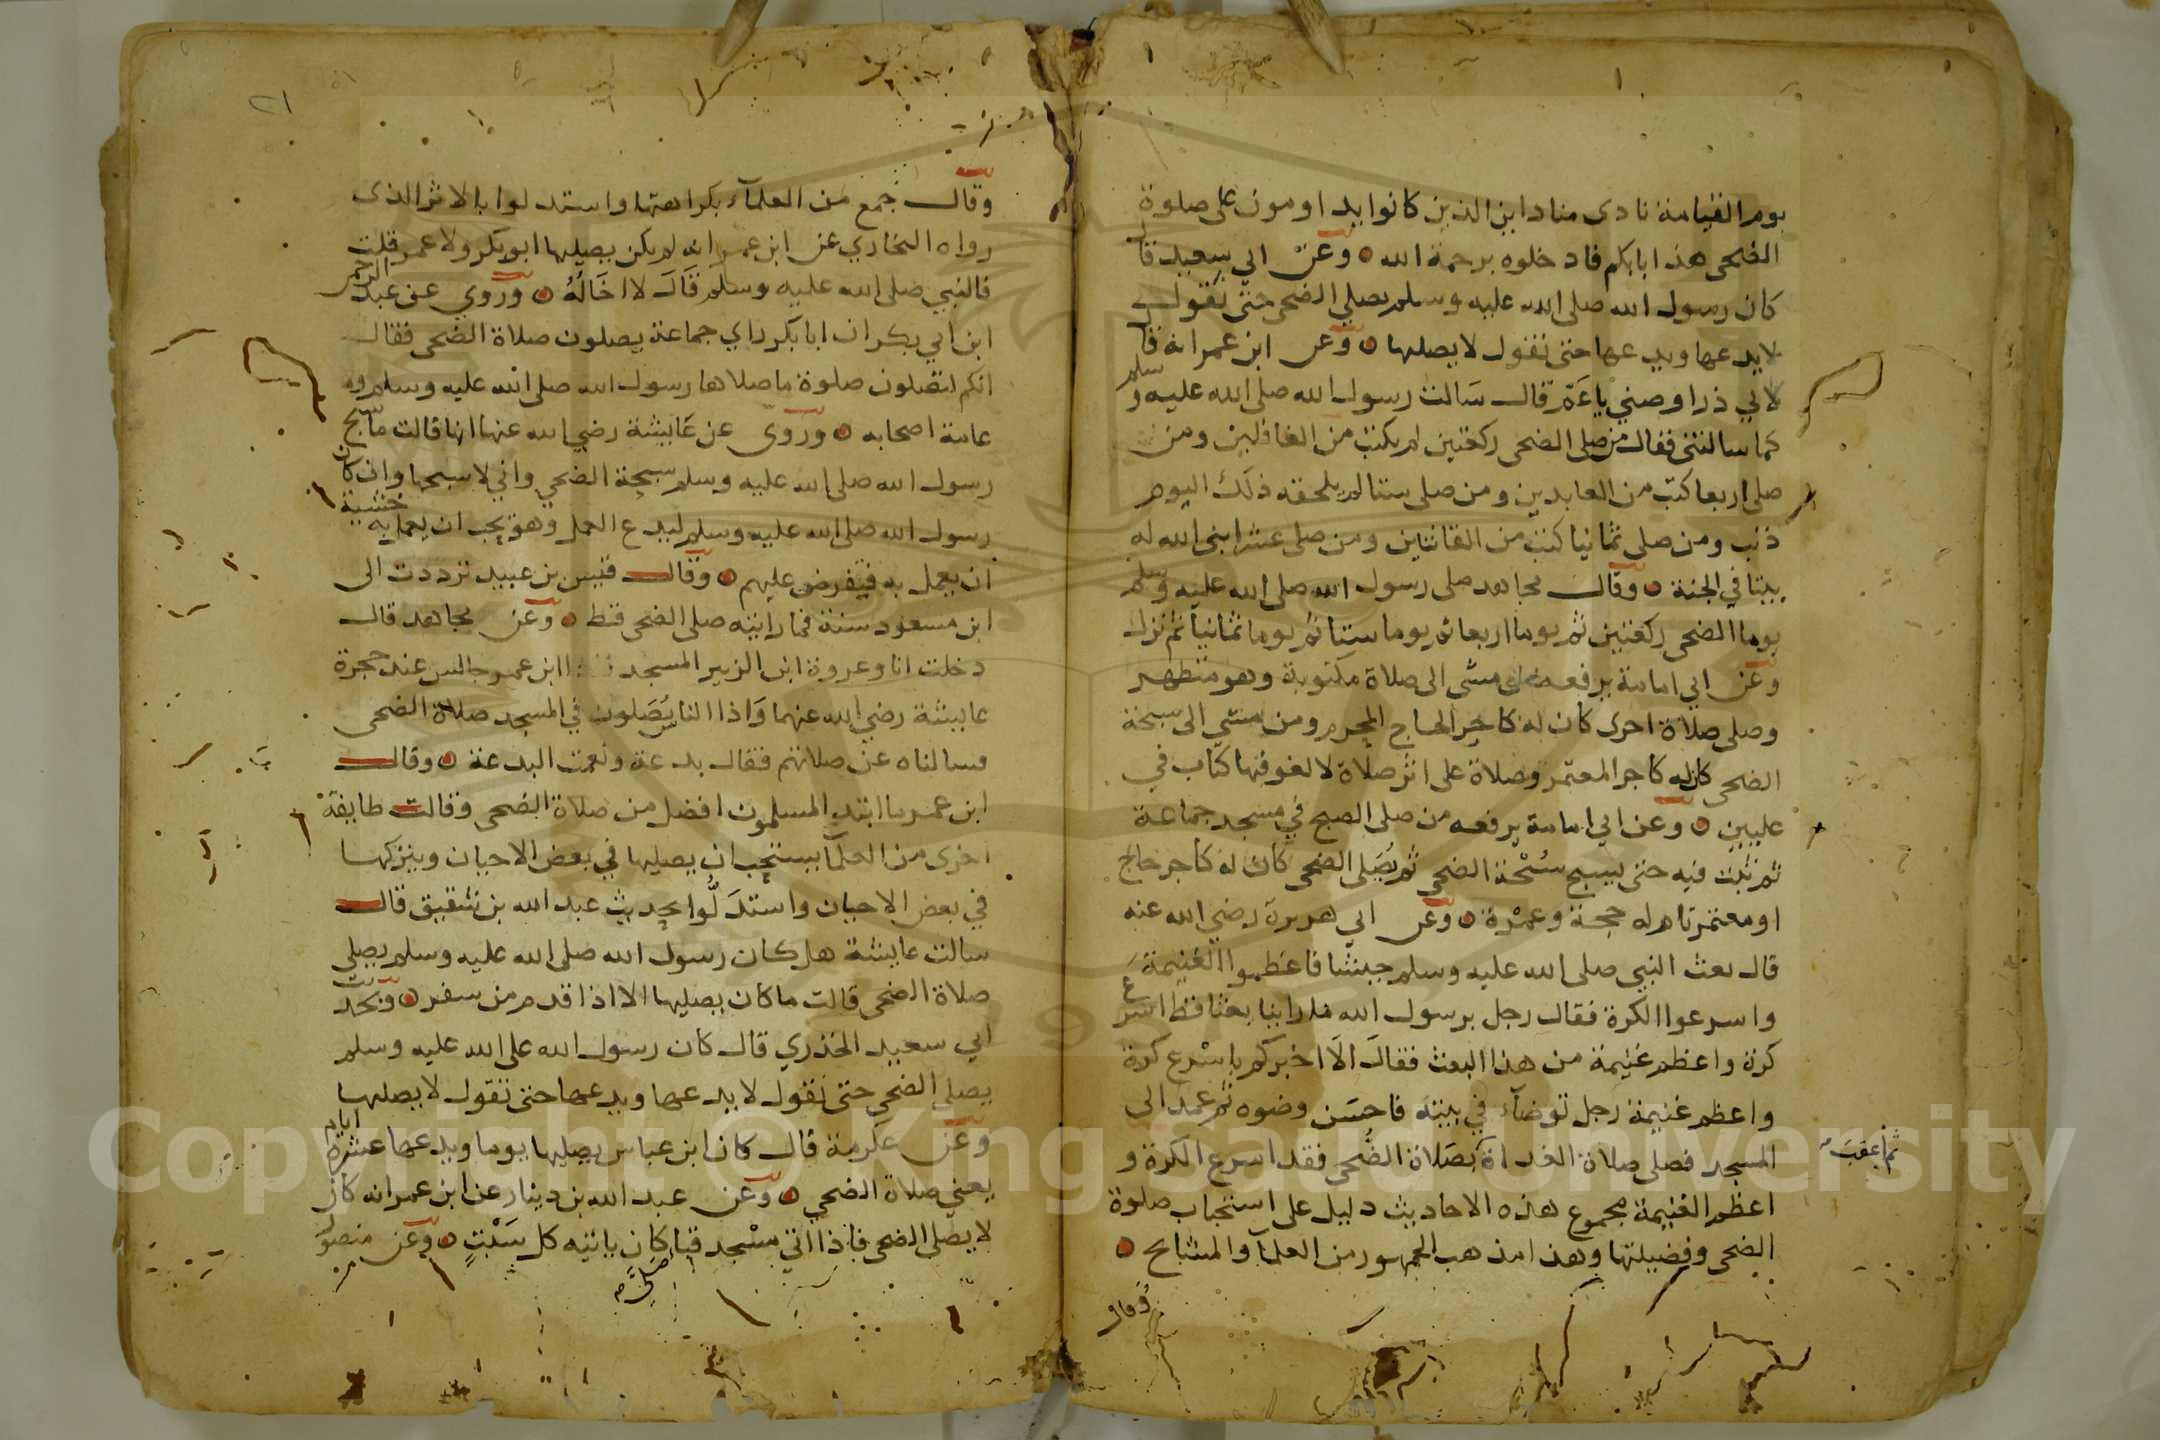 يوم القيامة نادى مناد اين الذين كانوا يداومون على صلوة
الضحى هذا بابكم فادخلوه برحمة الله وعن ابي سعيد قال
كان رسول الله صلى الله عليه وسلم يصلي الضحى حتى نقول
لا يدعها ويدعها حتى نقول لا يصليها وعن ابن عمر انه قال
لابي ذر اوصني ياعم قال سالت رسول الله صلى الله عليه وسلم
كما سالتني فقال من صلى الضحى ركعتين لم يكتب من الغافلين ومن
صلى اربعا كتب من العابدين ومن صلى ستا لم يلحقه ذلك اليوم
ذنب ومن صلى ثمانيا كتب من القانتين ومن صلى عشرا بنى الله له
بيتا في الجنة وقال مجاهد صلى رسول الله صلى الله عليه وسلم
يوما الضحى ركعتين ثم يوما اربعا ثم يوما ستا ثم يوما ثمانيا ثم ترك
وعن ابي امامة يرفعه من مشى الى صلاة مكتوبة وهو متطهر
وصلى صلاة اخرى كان له كاجر الحاج المحرم ومن مشى الى سبحة
الضحى كان له كاجر المعتمر وصلاة على اثر صلاة لا لغو فيها كتاب في
عليين وعن ابي امامة يرفعه من صلى الصبح في مسجد جماعة
ثم ثبت فيه حتى يسبح سبحة الضحى ثم يصلى الضحى كان له كاجر حاج
او معتمر تام له حجة وعمرة وعن ابي هريرة رضي الله عنه
قال بعث النبي صلى الله عليه وسلم جيشا فاعظموا الغنيمة
واسرعوا الكرة فقال رجل يرسول الله ما راينا بعثا قط اسرع
كرة واعظم غنيمة من هذا البعث فقال الا اخبركم باسرع كرة
واعظم غنيمة رجل توضاء في بيته فاحسن وضوه ثم عمد الى
المسجد فصلى صلاة الغداة بصلاة الضحى فقد اسرع الكرة و
ثم اعقب
اعظم الغنيمة مجموع هذه الاحاديث دليل على استحباب صلوة
الضحى وفضيلتها وهذا مذهب الجمهور من العلما والمشايخ
وقال
٢١
وقال جمع من العلماء بكراهتها واستدلوا بالاثر الذى
رواه البخاري عن ابن عمر انه لم يكن يصليها ابو بكر ولا عمر قلت
فالنبي صلى الله عليه وسلم قال لا اخاله وروي عن عبد الرحمن
ابن ابي بكر ان ابا بكر راي جماعة يصلون صلاة الضحى فقال
انكم لتصلون صلوة ما صلاها رسول الله صلى الله عليه وسلم ولا
عامة اصحابه وروى عن عايشة رضي الله عنها انها قالت ما سبح
رسول الله صلى الله عليه وسلم سبحة الضحى واني لاسبحها وان كان
رسول الله صلى الله عليه وسلم ليدع العمل وهو يحب ان يعمل به خشية
ان يعمل به فيفرض عليهم وقال قيس بن عبيد ترددت الى
ابن مسعود سنة فما رايته صلى الضحى قط وعن مجاهد قال
دخلت انا وعروة ابن الزبير المسجد فاذا ابن عمر جالس عند حجرة
عايشة رضي الله عنهما واذا الناس يصلون في المسجد صلاة الضحى
فسالناه عن صلاتهم فقال بدعة ونعمت البدعة وقال
ابن عمر ما ابتدع المسلمون افضل من صلاة الضحى وقالت طايفة
اخرى من العلما يستحب ان يصليها في بعض الاحيان ويتركها
في بعض الاحيان واستدلوا بحديث عبد الله بن شقيق قال
سالت عايشة هل كان رسول الله صلى الله عليه وسلم يصلي
صلاة الضحى قالت ما كان يصليها الا اذا قدم من سفر وبحديث
ابي سعيد الخذري قال كان رسول الله صلى الله عليه وسلم
يصلى الضحى حتى نقول لا يدعها ويدعها حتى نقول لا يصليها
وعن عكرمة قال كان ابن عباس يصليها يوما ويدعها عشرة ايام
يعني صلاة الضحى وعن عبد الله بن دينار عن ابن عمر انه كان
لا يصلى الضحى فاذا اتي مسجد قبا كان ياتيه كل سبت وعن منصور
Copyright © King Saud University